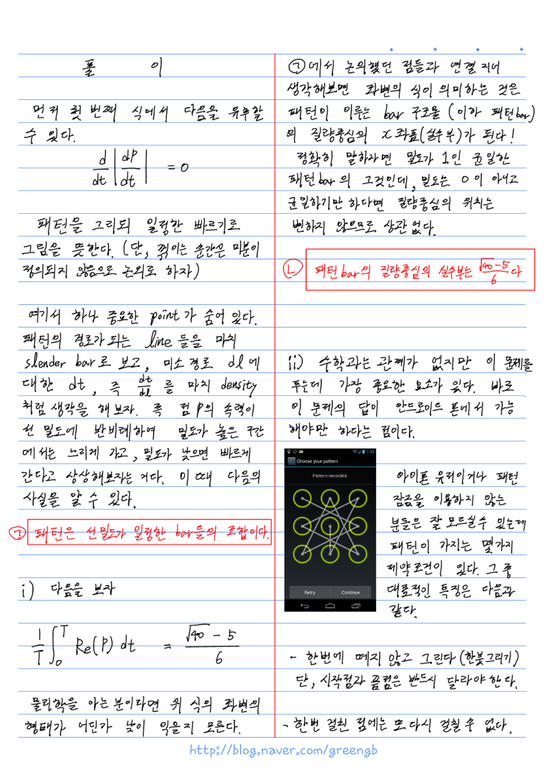 풀 이
먼저 첫 번째 식에서 다음을 유추할
수 있다.
d/dt |dP/dt| = 0
패턴을 그리되 일정한 빠르기로
그림을 뜻한다. (단, 꺾이는 순간은 미분이
정의되지 않음으로 논외로 하자)
여기서 하나 중요한 point가 숨어 있다.
패턴의 경로가 되는 line 들을 마치
slender bar로 보고, 미소 경로 dl 에
대한 dt, 즉 dt/dl 를 마치 density
처럼 생각을 해보자. 즉 점 P의 속력이
선 밀도에 반비례하여 밀도가 높은 구간
에서는 느리게 가고, 밀도가 낮으면 빠르게
간다고 상상해보자는 거다. 이 때 다음의
사실을 알 수 있다.
㉠ 패턴은 선밀도가 일정한 bar들의 조합이다.
i) 다음을 보자
1/T ∫₀ᵀ Re(P) dt = (√40 - 5)/6
물리학을 아는 분이라면 위 식의 좌변의
형태가 어딘가 낯이 익을지 모른다.
㉠에서 논의했던 점들과 연결지어
생각해보면 좌변의 식이 의미하는 것은
패턴이 이루는 bar 구조물 (이하 패턴bar)
의 질량중심의 x좌표(실수부)가 된다!
정확히 말하자면 밀도가 1인 균일한
패턴bar의 그것인데, 밀도는 0이 아니고
균일하기만 하다면 질량중심의 위치는
변하지 않으므로 상관없다.
㉡ 패턴bar의 질량중심의 실수부는 (√40-5)/6 다
ii) 수학과는 관계가 없지만 이 문제를
푸는데 가장 중요한 요소가 있다. 바로
이 문제의 답이 안드로이드 폰에서 가능
해야만 하다는 점이다.
Choose your pattern
Pattern recorded
Retry Continue
아이폰 유저이거나 패턴
잠금을 이용하지 않는
분들은 잘 모르실수 있는게
패턴이 가지는 몇가지
제약조건이 있다. 그 중
대표적인 특징은 다음과
같다.
- 한번에 떼지 않고 그린다 (한붓그리기)
단, 시작점과 끝점은 반드시 달라야 한다.
- 한번 걸친 점에는 또 다시 걸칠 수 없다.
http://blog.naver.com/greengb